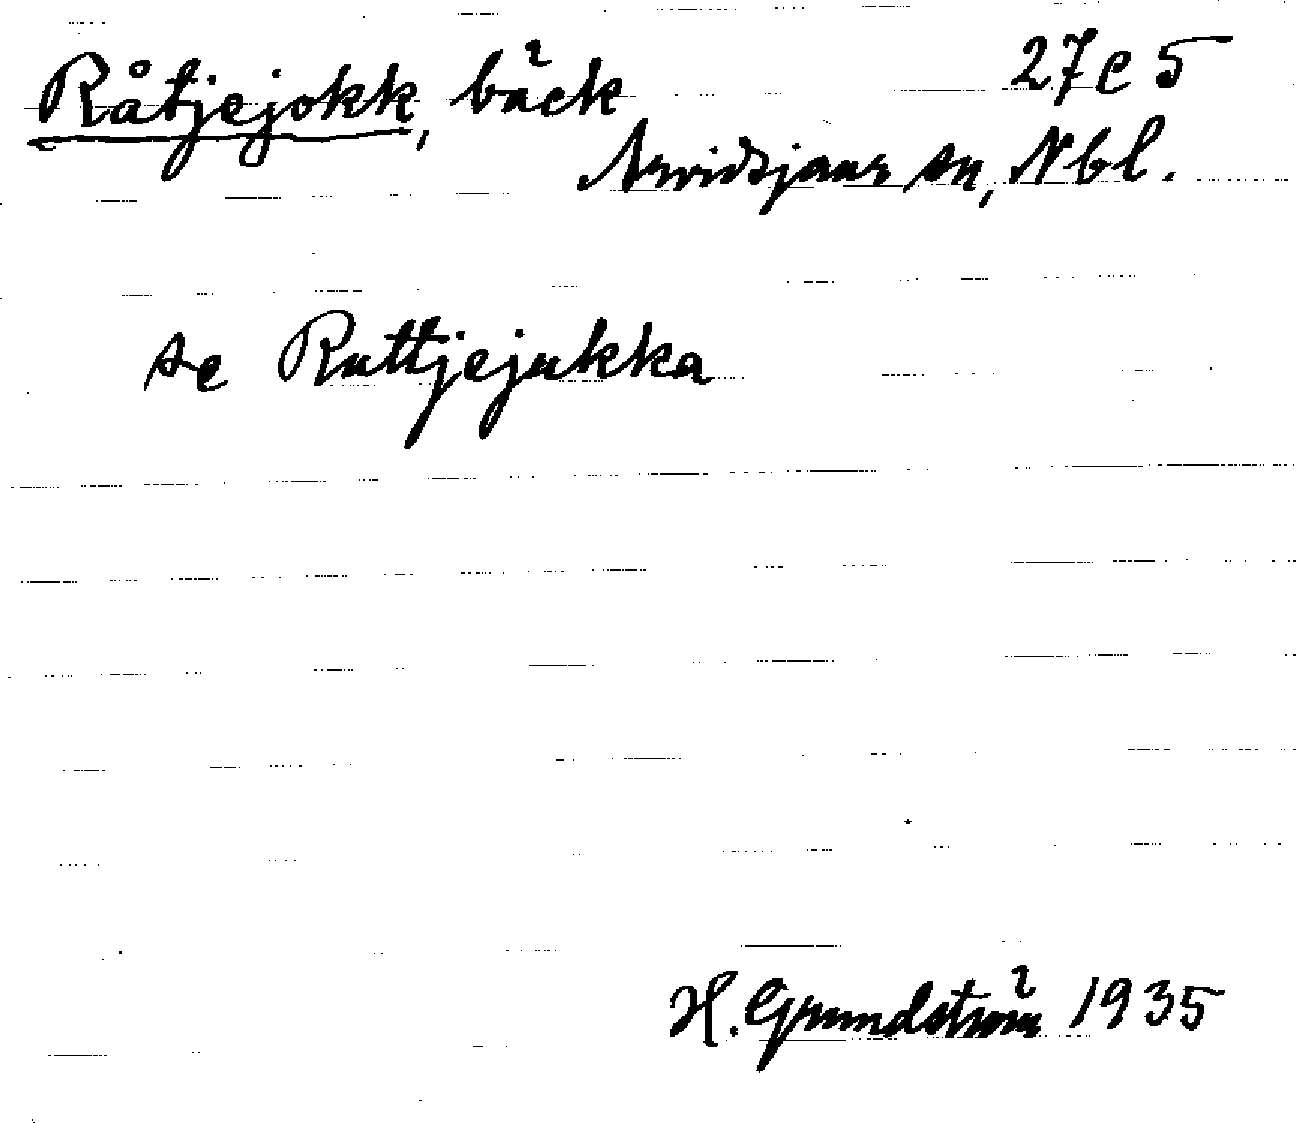 Råtjejokk, bäck 27c5
Arvidsjaur sn, Nbl.
se Ruttjejukka
H. Grundström 1935